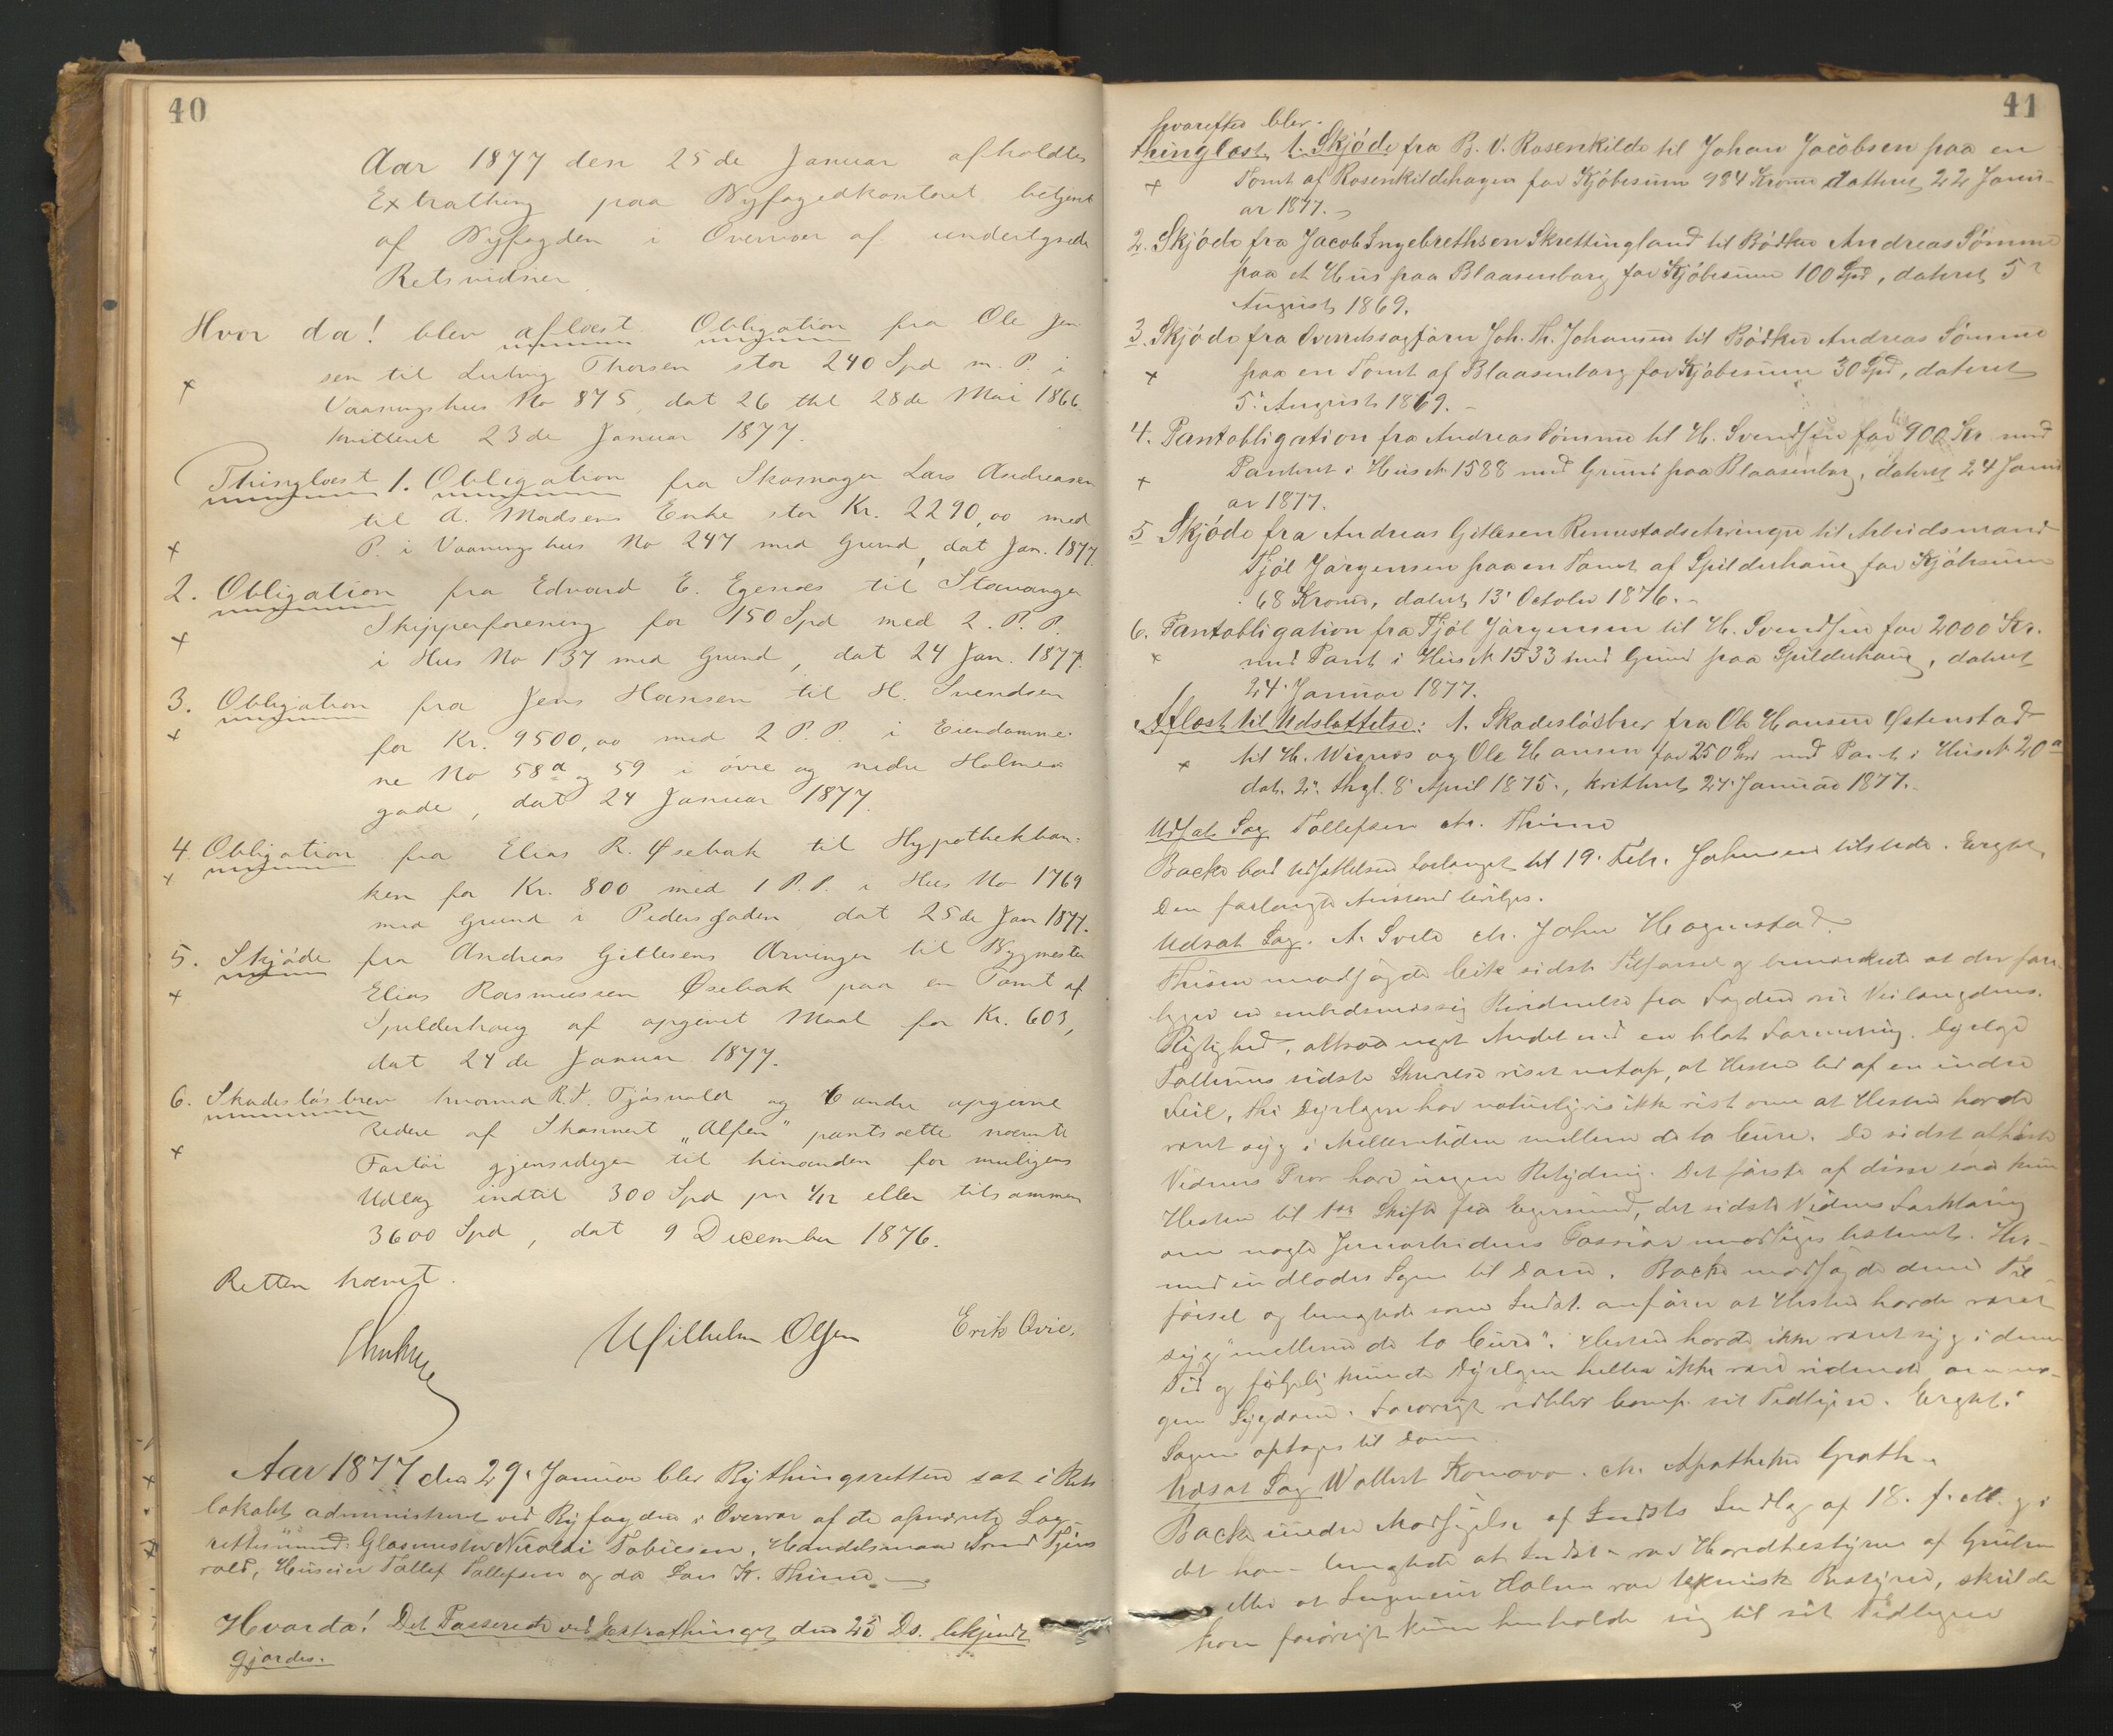 40
Aar 1877 den 25de Januar afholdtes
Extrathing paa Byfogedkontoret betjent
af Byfogden i Overvær af undertegnede
Retsvidner
Hvor da! blev aflæst Obligation fra Ole Jen
sen til Ludvig Thorsen stor 240 Spd m. P. i
Vaaningshus No 875, dat 26 thl 28de Mai 1866.
kvitteret 23de Januar 1877.
Thinglæst 1. Obligation fra Skomager Lars Andreasen
til A. Madsens Enke stor Kr. 2290,00 med
P. i Vaaningshus No 247 med Grund, dat Jan. 1877.
2. Obligation fra Edvard E. Egenæs til Stavanger
Skipperforening for 150 Spd med 2. P. P.
i Hus No 137 med Grund, dat 24 Jan. 1877.
3. Obligation fra Jens Hansen til H. Svendsen
for Kr. 9500,00 med 2 P. P. i Eiendomme
ne No 58a og 59 i øvre og nedre Holme
gade, dat 24 Januar 1877.
4. Obligation fra Elias R. Øsebak til Hypothekban-
ken for Kr. 800 med 1 P. P. i Hus No 1769
med Grund i Pedersgaden dat 25de Jan 1877.
5. Skjøde fra Andreas Gitlesens Arvinger til Bygmester
Elias Rasmussen Øsebak paa en Tomt af
Spilderhaug af opgivet Maal for Kr. 603,
dat 24de Januar 1877.
6. Skadesløsbrev hvorved R. T. Tjøsvold og 6 andre opgivne
Redere af Skonnert "Alfen" pantsætte nævnte
Fartøi gjensidigen til hinanden for muligens
Udlæg indtil 300 Spd pr 1/12 eller tilsammen
3600 Spd, dat 9 December 1876.
Retten hævet.
Wilhelm Olsen Erik Qvie.
Aar 1877 den 29. Januar blev Bythingsretten sat i Rets
lokalet administreret ved Byfogden i Overvær af de opnævnte Lag-
rettesmænd: Glasmester Nicolai Tobiesen, Handelsmand Svend Tjøs
vold, Huseier Tollef Tollefsen og do Lars K. Thime
Hvorda! Det Passerede ved Extrathinget den 25 Ds. bekjendt
gjordes.
41
hvorefter blev
thinglæst, 1. Skjøde fra B. V. Rosenkilde til Johan Jacobsen paa en
Tomt af Rosenkildehagen for Kjøbesum 984 Kroner dateret 22 Janu-
ar 1877.
2. Skjøde fra Jacob Ingebrethsen Skrettingland til Bødker Andreas Sømme
paa et Hus paa Blaasenborg for Kjøbesum 100 Spd, dateret 5
August 1869.
3. Skjøde fra Overretssagfører Joh. Th. Johansen til Bødker Andreas Sømme
paa en Tomt af Blaasenborg for Kjøbesum 30 Spd, dateret
5. August 1869.
4. Pantobligation fra Andreas Sømme til H. Svendsen for 900 Kr med
Panteret i Hus № 1588 med Grund paa Blaasenborg, dateret 24 Janu
ar 1877.
5 Skjøde fra Andreas Gitlesen Rennestads Arvinger til Arbeidsmand
Tjøl Jørgensen paa en Tomt af Spilderhaug for Kjøbesum
68 Kroner, dateret 13. October 1876.
6. Pantobligation fra Tjøl Jørgensen til H. Svendsen for 2000 Kr.
med Pant i Hus № 1533 med Grund paa Spilderhaug, dateret
24. Januar 1877.
Aflæst til Udslettelse: 1. Skadesløsbrev fra Ole Hansen Østenstad
til H. Wignæs og Ole Hansen for 250 Spd med Pant i Hus № 20a
dat. 2. thgl. 8. April 1875., kvitteret 24. Januar 1877.
Udsat Sag Tollefsen ctr. Thime
Backe bad Udsættelsen forlænget til 19. Febr. Johnsen tilstede. Ergik
Den forlangte Anstand bevilges.
Udsat Sag. A. Svela ctr. John Hognestad.
Thisen modsagde sidste Tilførsel og bemærkede at der fore
ligger en embedsmæssig fra Fogden om Veilængdens
Rigtighed, altsaa noget Andet end en blot Formening.
sidste viser netop, at Hesten led af en indre
Feil, thi Dyrlægen har naturligvis ikke vidst om at Hesten havde
været syg i Mellemtiden mellem de to Cure. De sidst afhørte
Vidners Prov have ingen Betydning. Det første af disse saa kun
Hesten til 1ste Skifte fra Egersund, det sidste Vidnes Forklaring
om modsiges bestemt. Her-
med indlades Sagen til Doms. Backe modsagde denne Til
førsel og benegtede som Indst. anfører at Hesten havde været
syg "mellem de to Cure". Hesten havde ikke været syg i denne
Tid og følgelig kunde Dyrlægen heller ikke være vidende om no-
gen Sygdom. Forøvrigt comp. sit Tidligere. Ergik:
Sagen optages til Doms
Udsat Sag Wollert Konow. ctr. Apotheker Groth.
Backe under Modsigelse af Indsts Indlæg af 18. f. Mt. gi
det han benegtede at Indst. var Hovedbestyrer af Gruben
eller at Ingeniør Holm var teknisk Bestyrer, skulde
han forøvrigt kun henholde sig til sit Tidligere